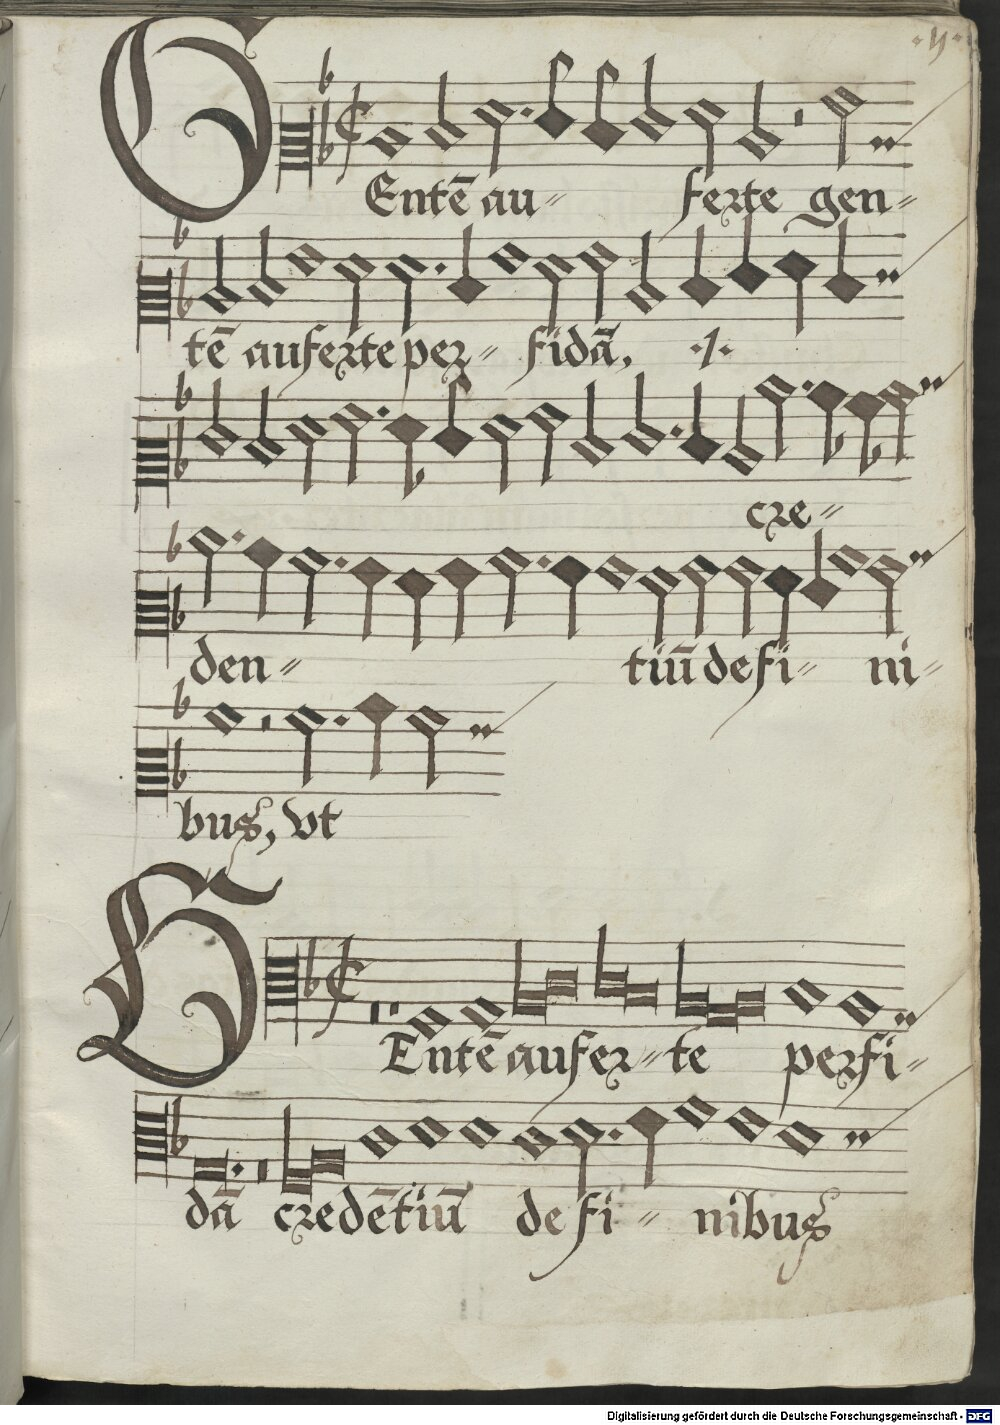 GEntē au- ferte gen-
tē auferte per- fidā, ·1·
cre-
den- tiū de fi- ni-
bus, vt
GEntē aufer- te perfi-
dā credētiū de fi- nibus
Digitalisierung gefördert durch die Deutsche Forschungsgemeinschaft - DFG